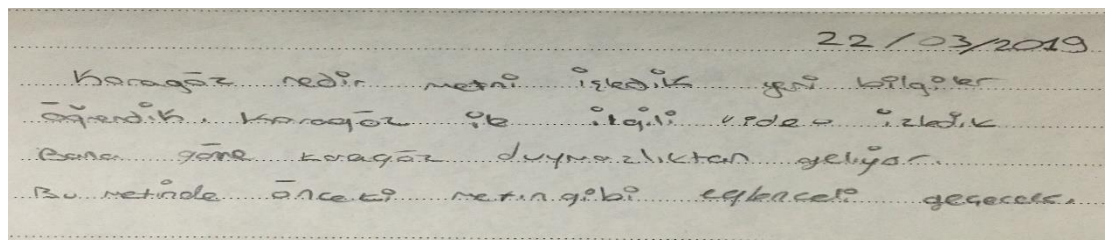 22/03/2019
Karagöz nedir metni işledik yeni bilgiler
öğrendik. Karagöz ile ilgili video izledik
Bana göre karagöz duymazlıktan geliyor.
Bu metinde önceki metin gibi eğlenceli geçecek.